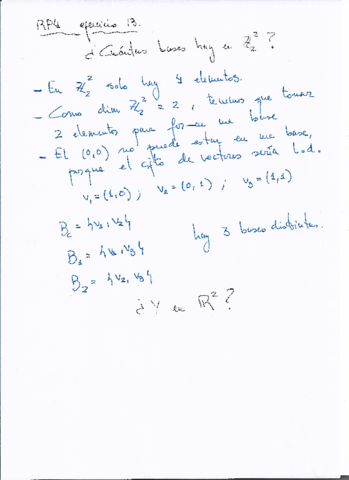 RP4 ejercicio 13.
¿Cuántas bases hay en ℤ₂² ?
- En ℤ₂² solo hay 4 elementos.
- Como dim ℤ₂² = 2, tenemos que tomar
2 elementos para formar una base
- El (0,0) no puede estar en una base,
porque el cjto de vectores sería l.d.
v₁ = (1,0) ; v₂ = (0,1) ; v₃ = (1,1)
= {v₁, v₂}
hay 3 bases distintas.
= {v₁, v₃}
= {v₂, v₃}
¿Y en ℝ² ?